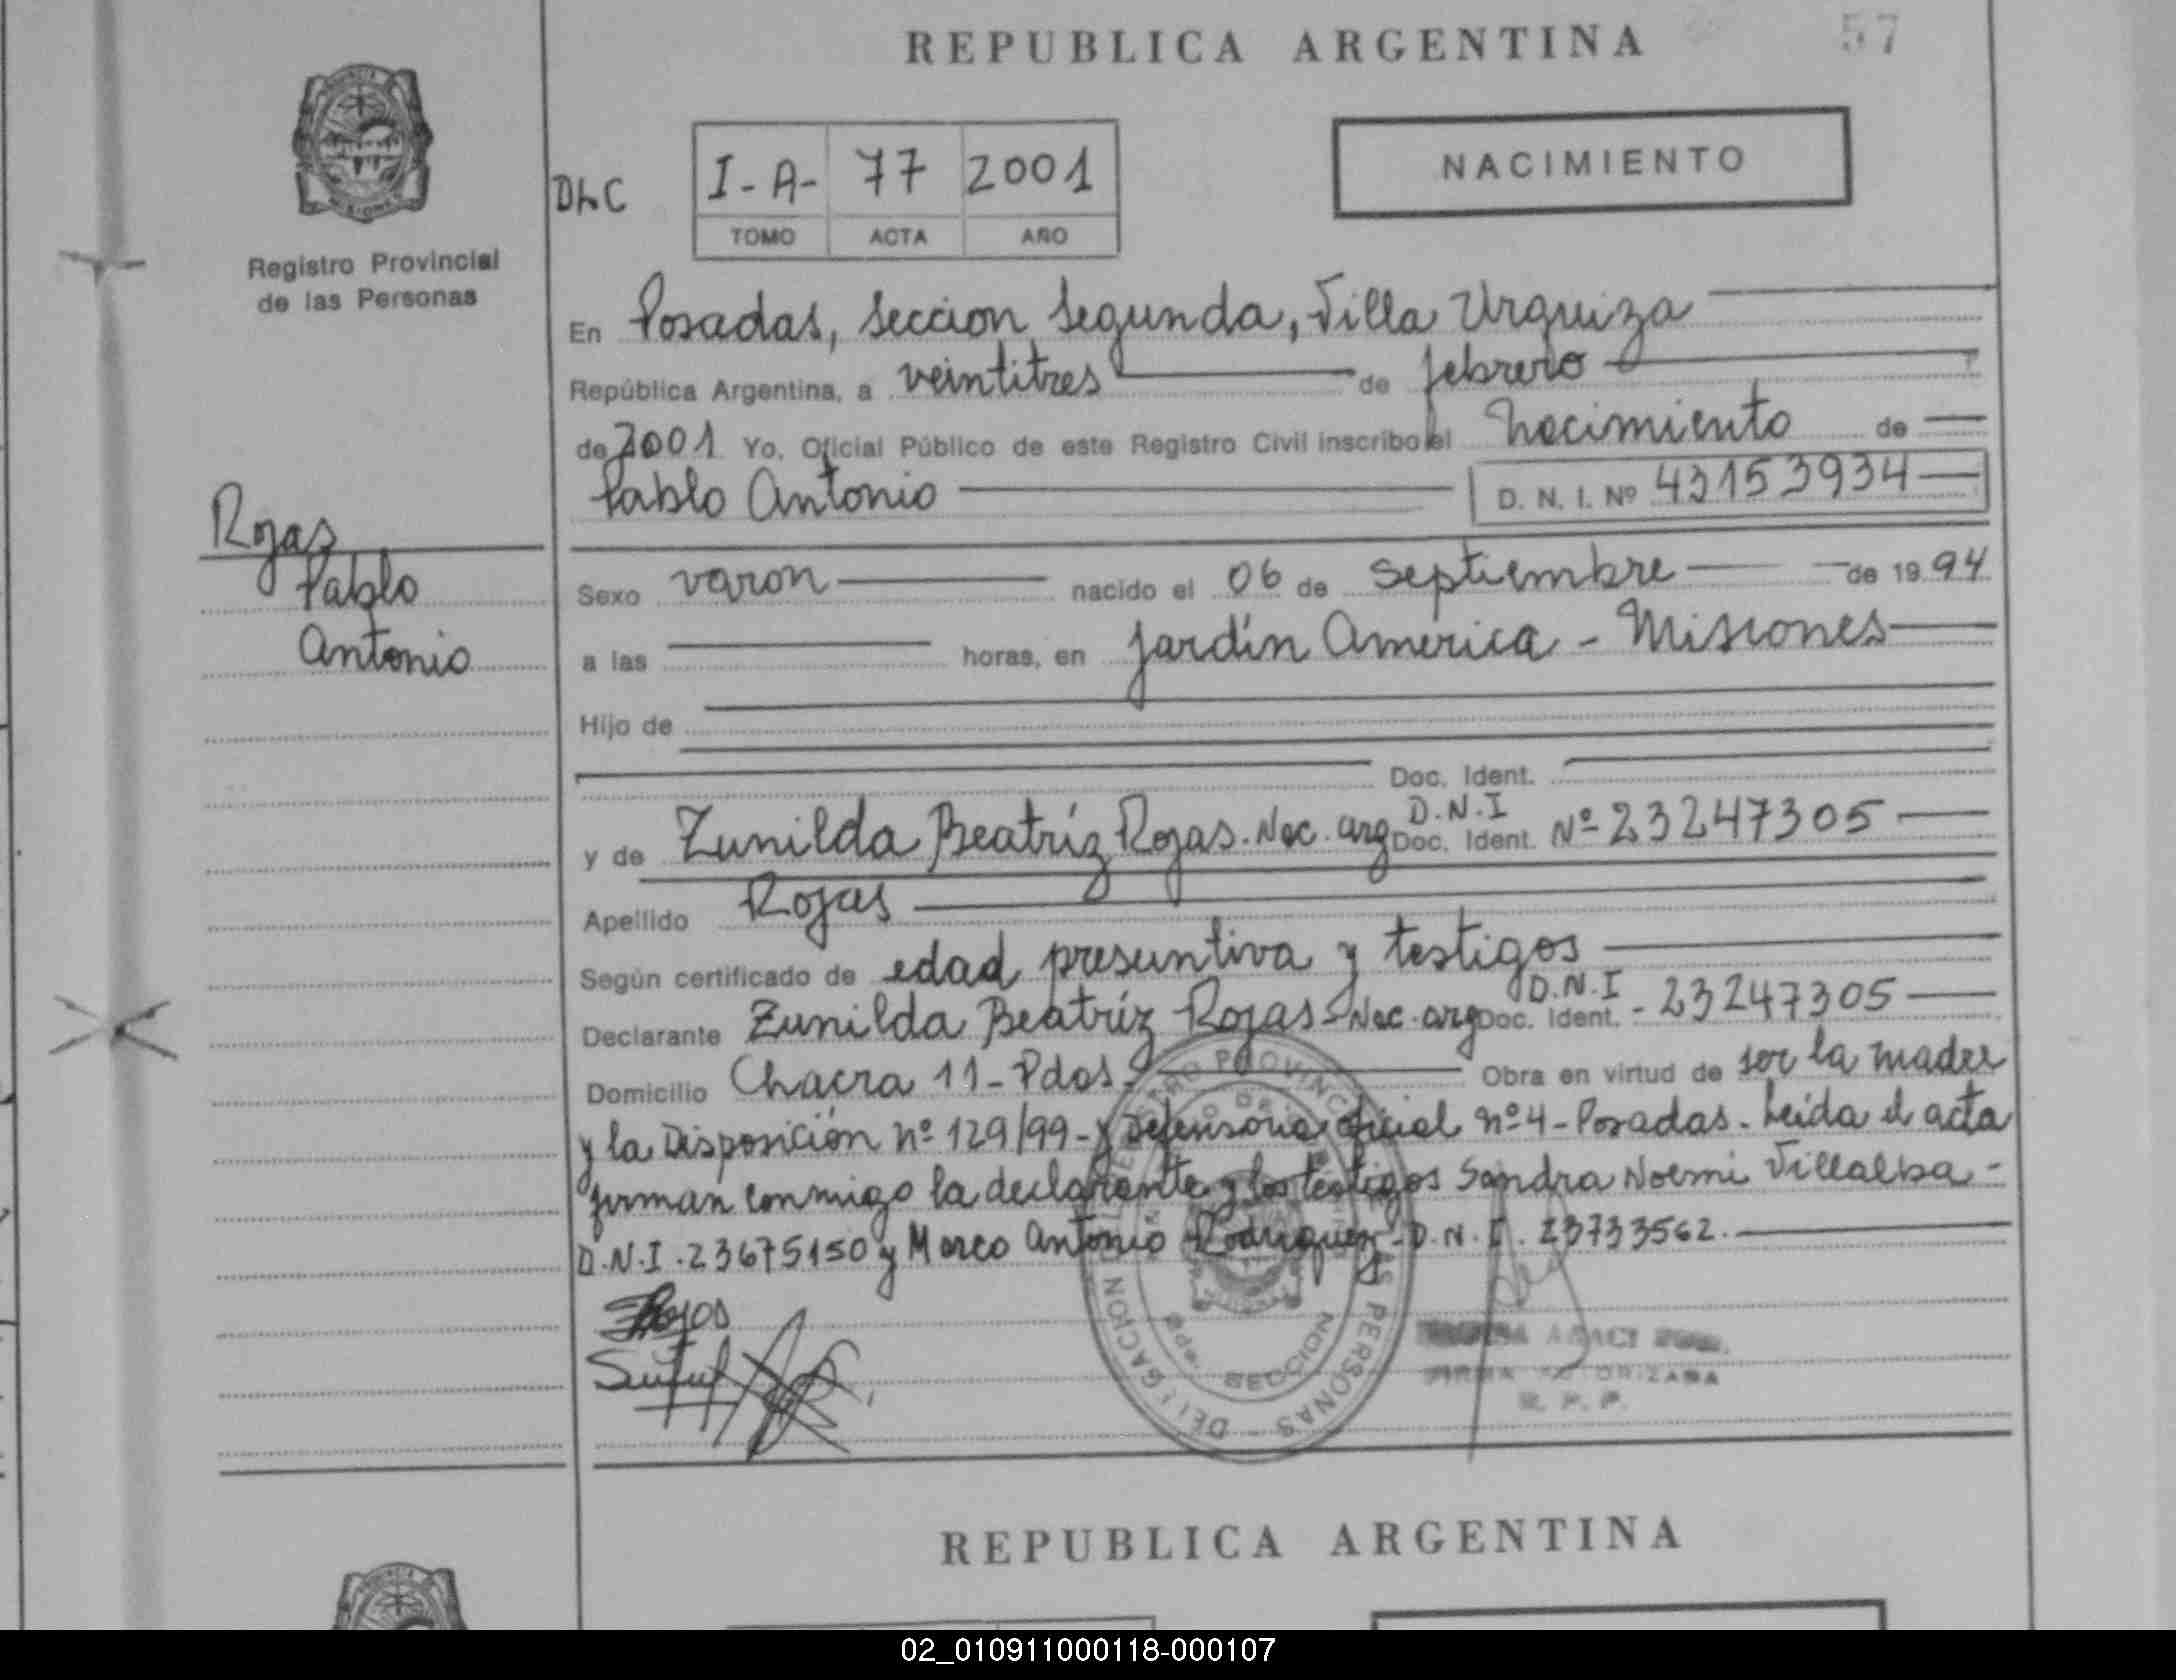 REPUBLICA ARGENTINA
57
DLC
I-A- 77 2001
TOMO ACTA AÑO
NACIMIENTO
Registro Provincial
de las Personas
Rojas
Pablo
Antonio
En Posadas, Seccion Segunda, Villa Urquiza
República Argentina, a veintitres de febrero
de 2001 Yo, Oficial Público de este Registro Civil inscribo el Nacimiento de
Pablo Antonio D. N. I. Nº 43153934
Sexo varon nacido el 06 de septiembre de 1994
a las horas, en Jardín America - Misiones
Hijo de
Doc. Ident.
y de Zunilda Beatríz Rojas. Nac. arg D.N.I Doc. Ident. Nº 23247305
Apellido Rojas
Según certificado de edad presuntiva y testigos
Declarante Zunilda Beatríz Rojas - Nac. arg D.N.I Doc. Ident. - 23247305
Domicilio Chacra 11 - Pdas. Obra en virtud de ser la madre
y la Disposición nº 129/99 - y Defensoria oficial nº 4 - Posadas. Leida el acta
firman conmigo la declarante y los testigos Sandra Noemi Villalba -
D.N.I. 23675150 y Marco Antonio Rodriguez - D.N.I. 23733562.
Rojas
FIRMA AUTORIZADA
R. P. P.
DELEGACION REGISTRO PROVINCIAL DE LAS PERSONAS
SECCION
REPUBLICA ARGENTINA
02_010911000118-000107